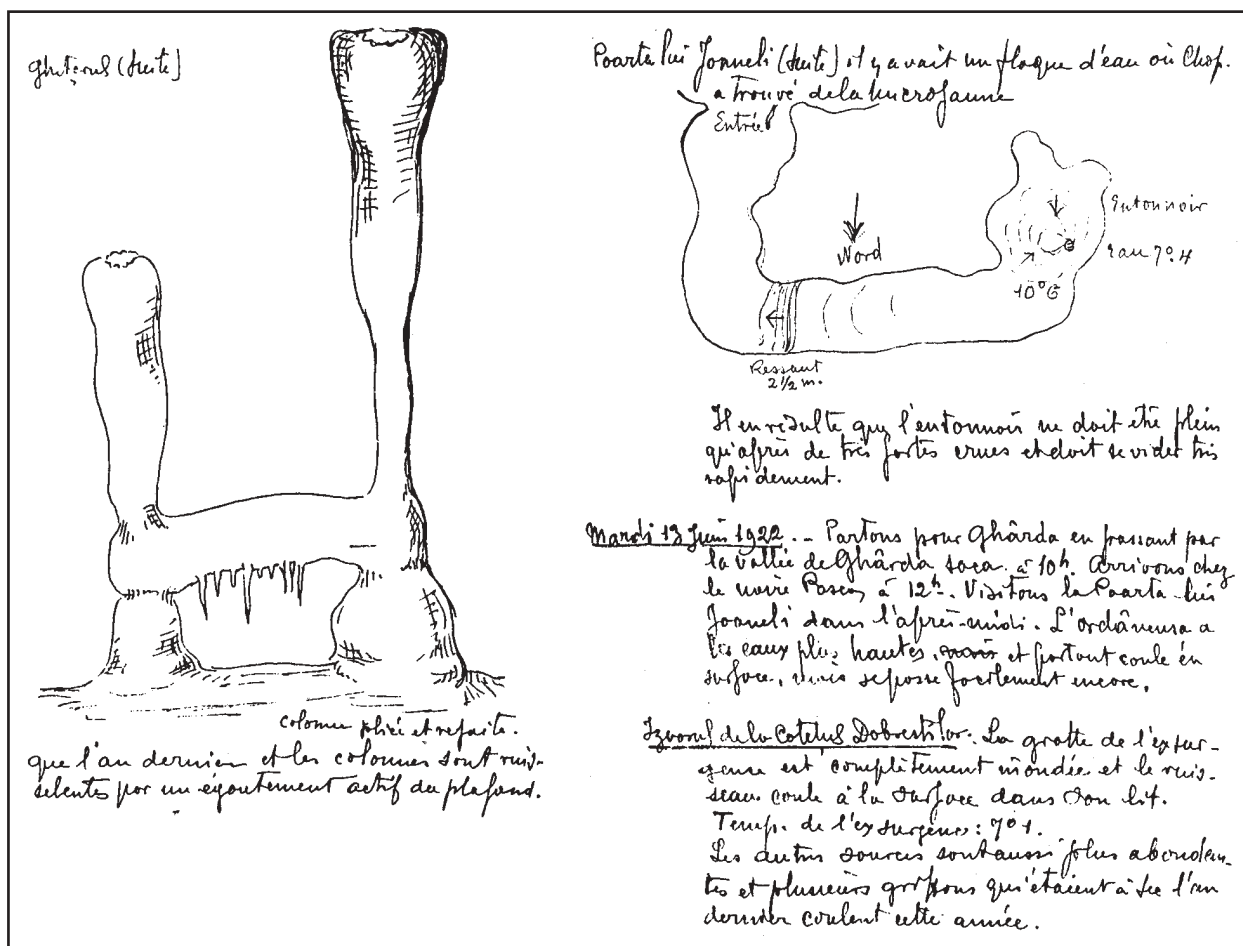 Ghețarul (suite)
colonne pliée et refaite.
que l'an dernier et les colonnes sont ruis-
selantes par un égouttement actif du plafond.
Poarta lui Joaneli (suite) il y avait un flaque d'eau où Chap.
a trouvé de la microfaune
Entrée
Nord
Entonnoir
eau 7°.4
10°6
Ressaut
2 1/2 m.
Il en résulte que l'entonnoir ne doit être plein
qu'après de très fortes crues et doit se vider très
rapidement.
Mardi 13 Juin 1922. _ Partons pour Ghârda en passant par
la vallée de Ghârda saca à 10h. Arrivons chez
le notaire à 12h. Visitons la Poarta lui
Joaneli dans l'après-midi. L'ordâncusa a
les eaux plus hautes, et partout coule en
surface, mais se passe facilement encore.
Izvorul de la Cotetul Dobrestilor. La grotte de l'exsur-
gence est complètement inondée et le ruis-
seau coule à la surface dans son lit.
Temp. de l'exsurgence : 7°1.
Les autres sources sont aussi plus abondan-
tes et plusieurs griffons qui étaient à sec l'an
dernier coulent cette année.